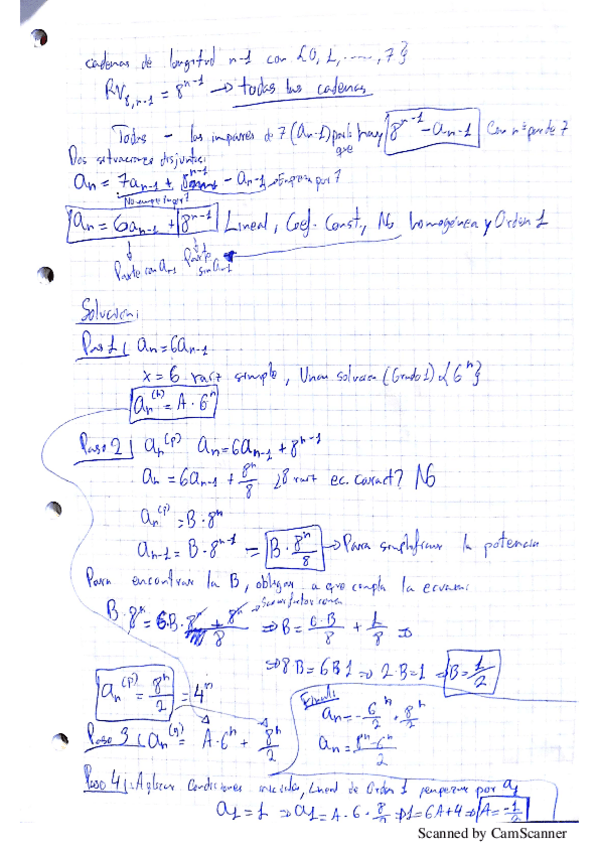 cadenas de longitud n-1 con {0, 1, ....., 7}
RV8,n-1 = 8^n-1 → todas las cadenas
Todas - las impares de 7 (an-1) par hay 8^n-1 - an-1 Con nº par de 7
que
Dos situaciones disjuntas:
an = 7an-1 + 8^n-1 - an-1 → Empieza por 7
No empieza por 7
an = 6an-1 + 8^n-1 Lineal, Coef. Const., No homogénea y Orden 1
Parte con an-1 Parte sin an-1
Solución:
Paso 1 | an = 6an-1
x = 6 raíz simple, Una solución (Grado 1) {6^n}
an^(h) = A · 6^n
Paso 2 | an^(p) an = 6an-1 + 8^n-1
an = 6an-1 + 8^n/8 ¿8 raíz ec. caract? No
an^(p) = B · 8^n
an-1 = B · 8^n-1 = B · 8^n/8 → Para simplificar la potencia
Para encontrar la B, obligar a que cumpla la ecuación
B · 8^n = 6B · 8^n/8 + 8^n/8 ⇒ B = 6·B/8 + 1/8 ⇒
⇒ 8B = 6B 1 ⇒ 2·B = 1 ⇒ B = 1/2
an^(p) = 8^n/2 = 4^n
an = -6^n/2 + 8^n/2
an = 8^n-6^n/2
Paso 3 | an^(g) = A·6^n + 8^n/2
Paso 4 | Aplicar Condiciones iniciales, Lineal de Orden 1 empezar por a1
a1 = 1 ⇒ a1 = A · 6 · 8/2 ⇒ 1 = 6A + 4 ⇒ A = -1/2
Scanned by CamScanner